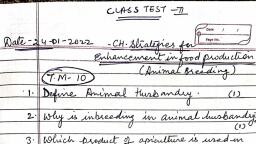 CLASS TEST - II
Date - 24-01-2022 - CH. Strategies for
Enhancement in food production
(Animal Breeding)
T.M-10
1. Define Animal Husbandry. (1)
2. Why is inbreeding in animal husbandry
(1)
3. Which product of apiculture is used in